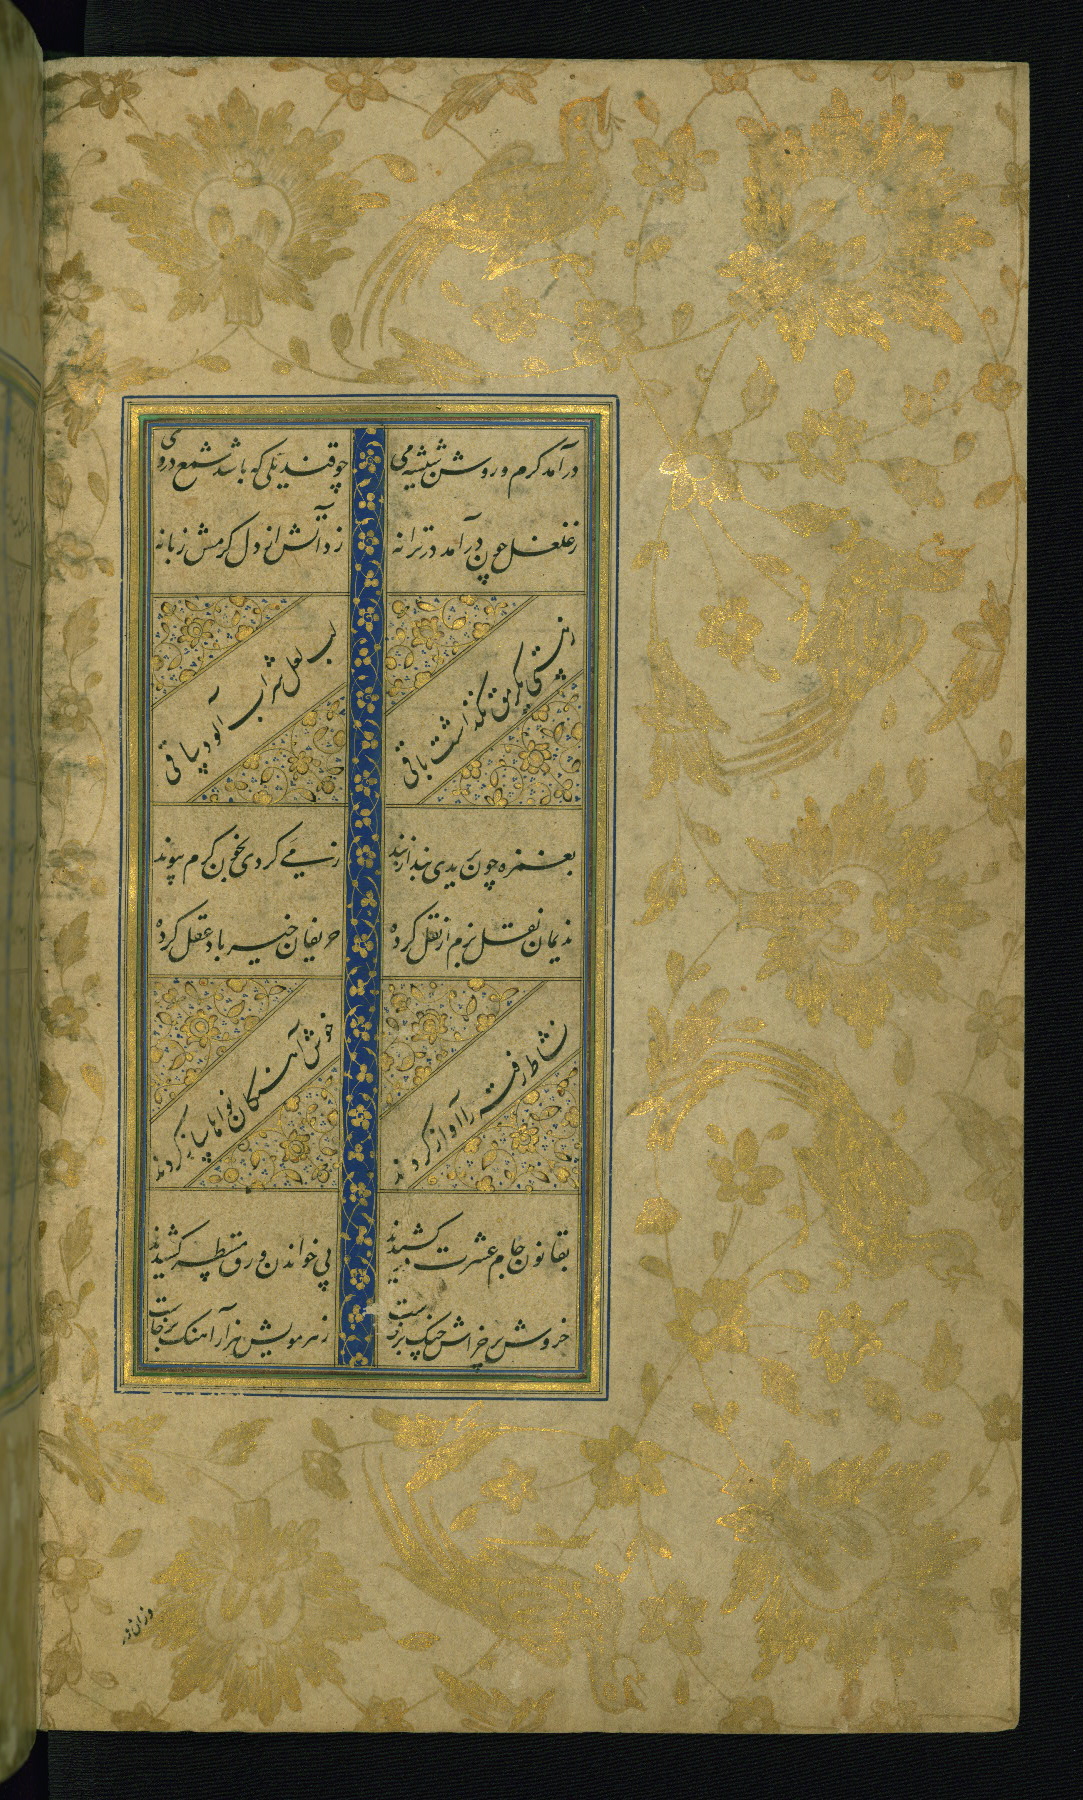 درآمد گرم و روشن شیشهٔ می
چو قندیلی که باشد شمع در وی
ز غلغل چون درآمد در ترانه
زد آتش از دل گرمش زبانه
ز مستی یک رمق نگذاشت باقی
لب لعل شراب آلود ساقی
بغمزه چون بریدی بند از بند
ز می کردی بخون گرم پیوند
ندیمان نقل بزم از نقل کرده
حریفان خیر باد عقل کرده
نشاط رفته را آواز کردند
خوش آهنگان نواها ساز کردند
بقانون جام عشرت در کشیدند
پی خواندن ورق مسطر کشیدند
خروش پر خراش چنگ برخاست
ز هر مویش هزار آهنگ برخاست
وزان زور